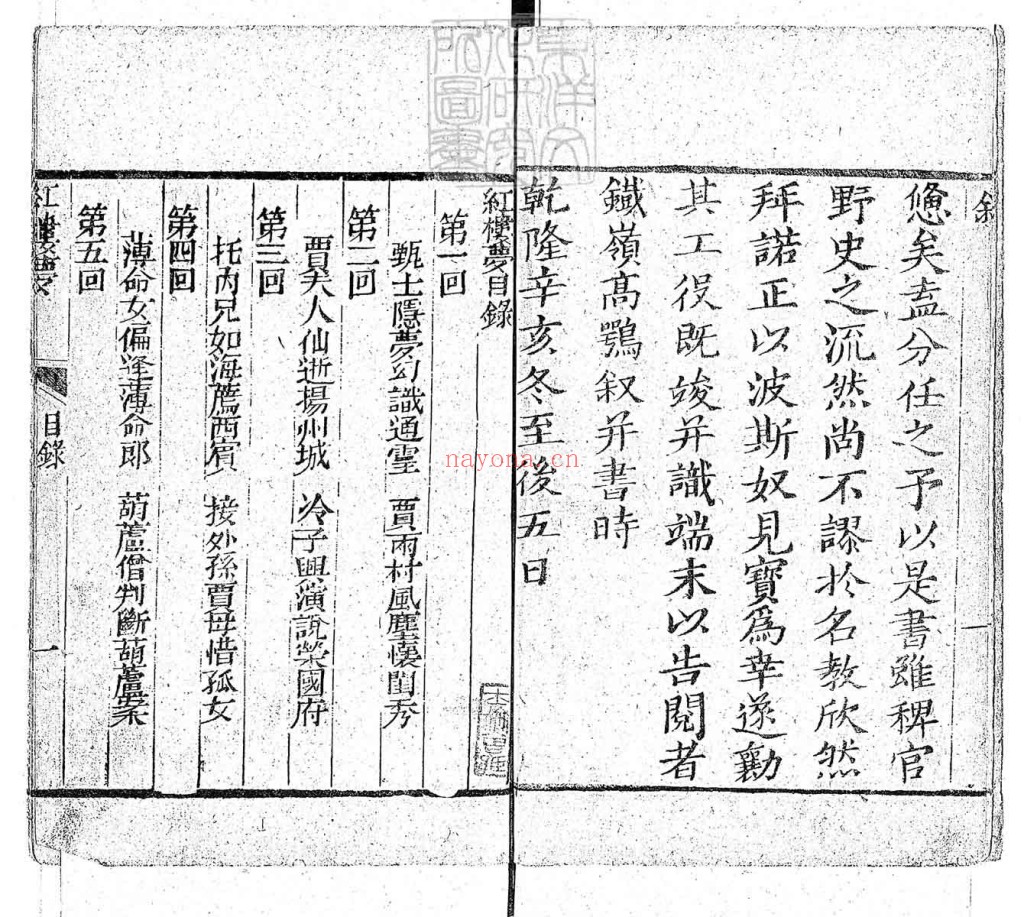 敘
一
憊矣盍分任之予以是書雖稗官
野史之流然尚不謬於名教欣然
拜諾正以波斯奴見寶爲幸遂勷
其工役既竣并識端末以告閱者
鐵嶺高鶚叙并書時
乾隆辛亥冬至後五日
紅樓夢目錄
第一回
甄士隱夢幻識通靈 賈雨村風塵懷閨秀
第二回
賈夫人仙逝揚州城 冷子興演說榮國府
第三回
托內兄如海薦西賓 接外孫賈母惜孤女
第四回
薄命女偏逢薄命郎 葫蘆僧判斷葫蘆案
第五回
紅樓夢 目錄 一
nayona.cn